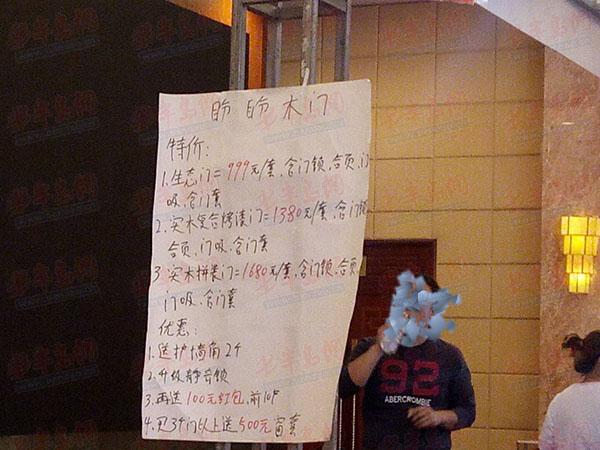 盼盼木门
特价:
1.生态门=999元/套,含门锁、合页、门
吸、含门套
2.实木复合烤漆门=1380元/套,含门锁
合页、门吸、含门套
3.实木拼装门=1680元/套,含门锁、合页、
门吸、含门套
优惠:
1.送护墙角2个
2.升级静音锁
3.再送100元红包,前10户
4.买3个门以上送500元窗套
92
ABERCROMBIE